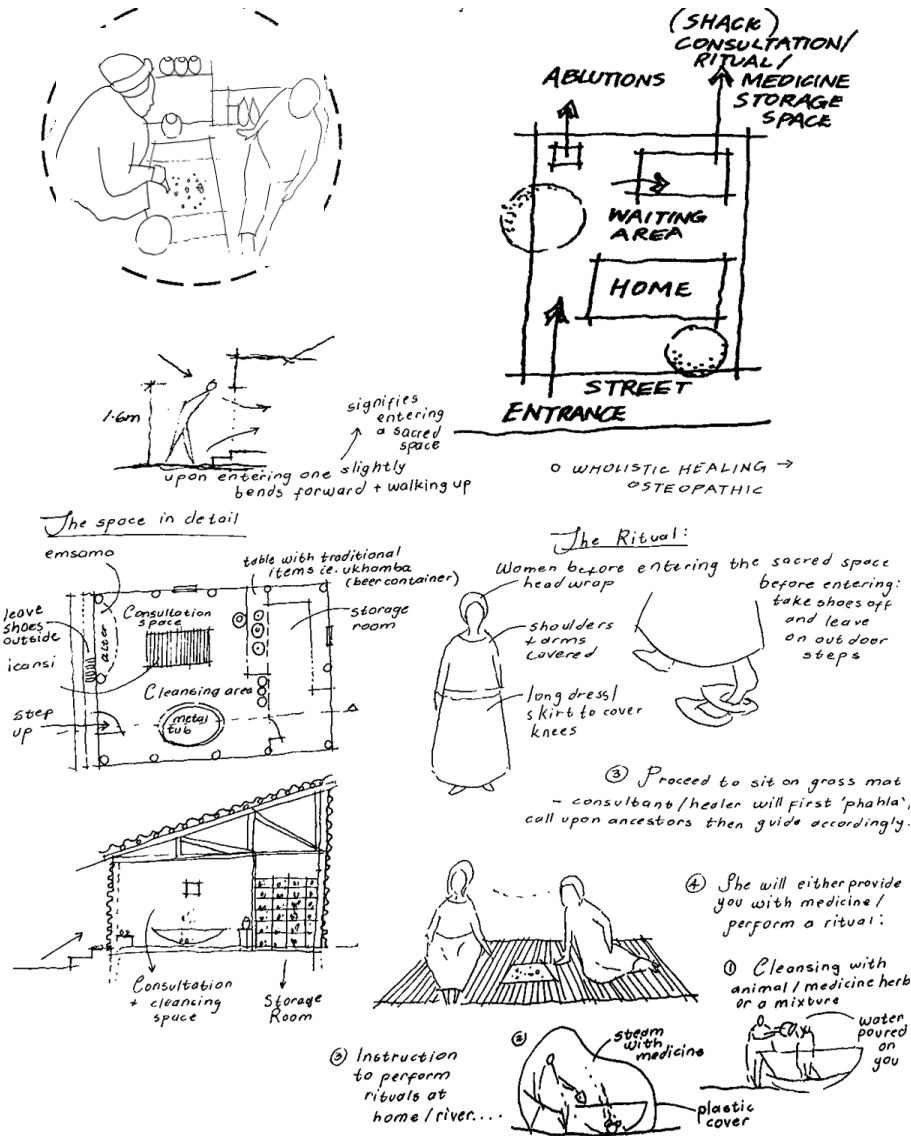 (SHACK)
CONSULTATION/
RITUAL/
MEDICINE
STORAGE
SPACE
ABLUTIONS
WAITING
AREA
HOME
STREET
ENTRANCE
1.6m
signifies
entering
a sacred
space
upon entering one slightly
bends forward + walking up
o WHOLISTIC HEALING →
OSTEOPATHIC
The space in detail
emsamo
table with traditional
items ie. ukhamba
(beer container)
leave
shoes
outside
icansi
Consultation
space
alter
storage
room
Cleansing area
metal
tub
step
up
Consultation
+ cleancing
space
Storage
Room
The Ritual:
Women before entering the sacred space
head wrap
shoulders
+ arms
covered
long dress/
skirt to cover
knees
before entering:
take shoes off
and leave
on outdoor
steps
③ Proceed to sit on grass mat
- consultant/healer will first 'phahla',
call upon ancestors then guide accordingly.
④ She will either provide
you with medicine/
perform a ritual:
① Cleansing with
animal/medicine herb
or a mixture
water
poured
on
you
②
steam
with
medicine
plastic
cover
③ Instruction
to perform
rituals at
home/river....